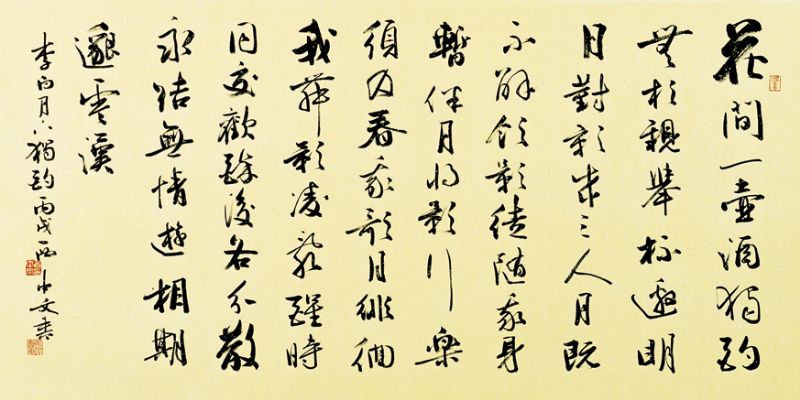 花間一壺酒獨酌
無相親舉杯邀明
月對影成三人月既
不解飲影徒随我身
暫伴月將影行樂
須及春我歌月徘徊
我舞影凌亂醒時
同交歡醉後各分散
永結無情遊相期
邈雲漢
李白月下獨酌丙戌文書